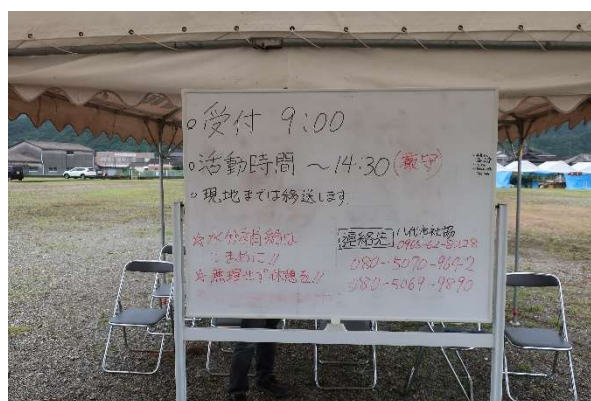 ○受付 9:00
○活動時間 ～14:30(厳守)
○現地までは移送します
☆水分補給は
こまめに!!
☆無理せず休憩を!!
連絡先 八代市社協
0965-62-8228
080-5070-9642
080-5069-9890